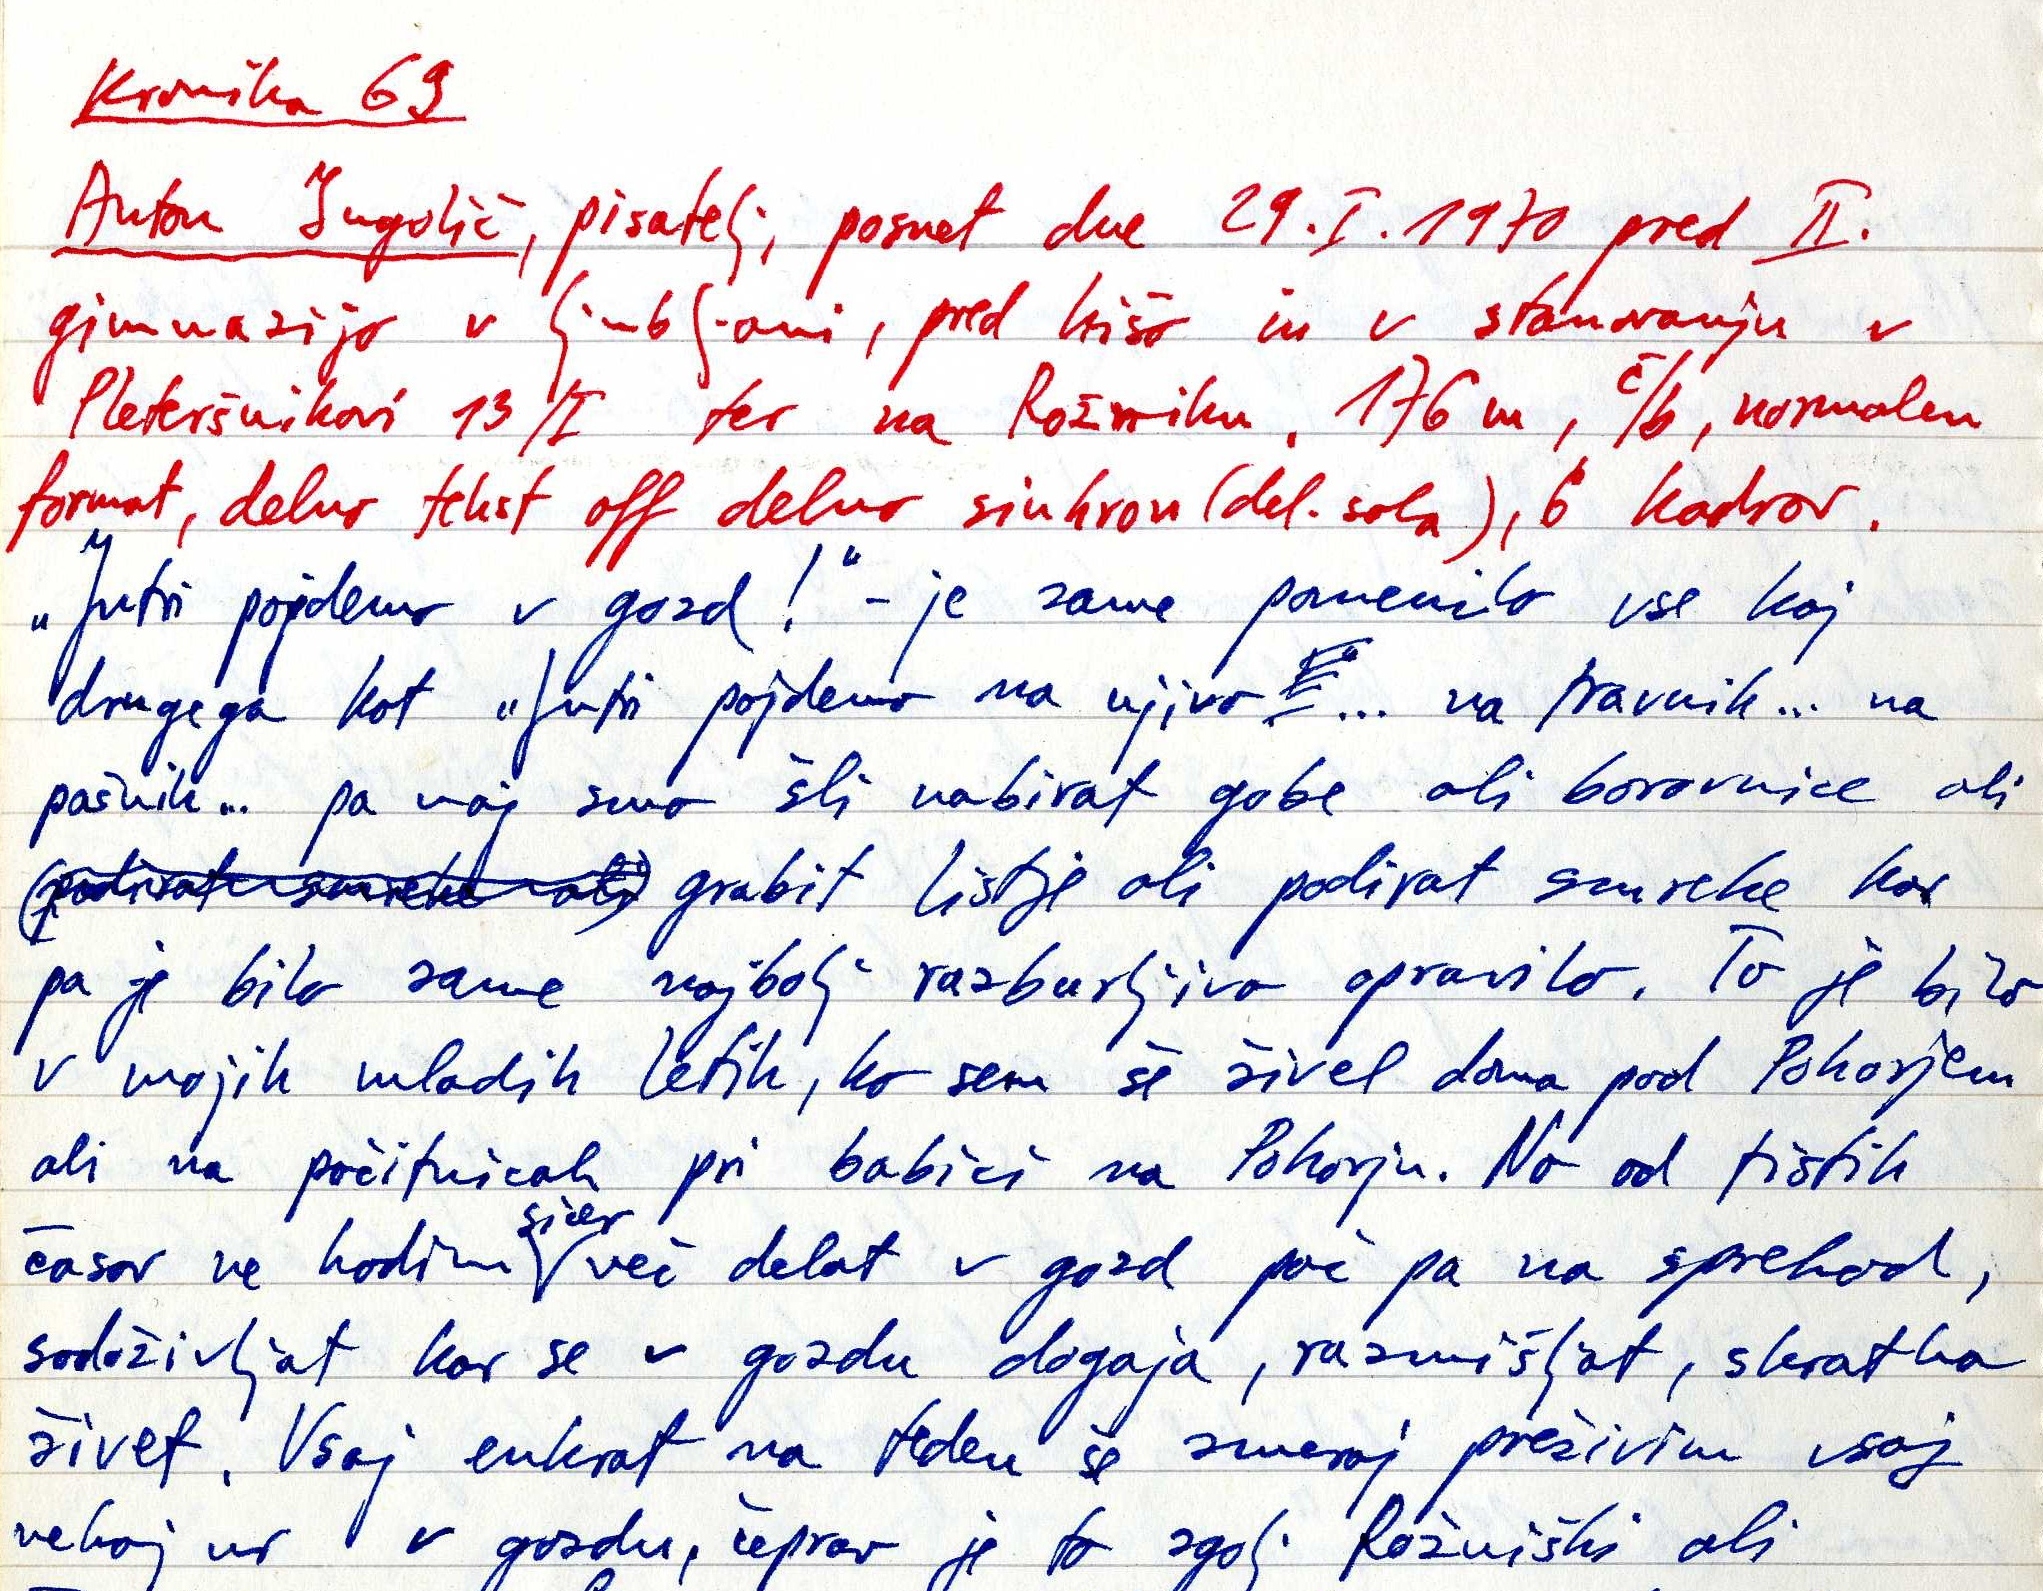 Kronika 69
Anton Ingolič, pisatelj, posnet dne 29.I.1970 pred II.
gimnazijo v Ljubljani, pred hišo in v stanovanju v
Pleteršnikovi 13/I ter na Rožniku, 176 m, č/b, normalen
format, delno tekst off delno sinhron (del. sola), 6 kadrov.
„Jutri pojdemo v gozd!" - je zame pomenilo vse kaj
drugega kot „Jutri pojdemo na njivo... na travnik... na
pašnik... pa naj smo šli nabirat gobe ali borovnice ali
(podirat smreke ali) grabit listje ali podirat smreke kar
pa je bilo zame najbolj razburljivo opravilo. To je bilo
v mojih mladih letih, ko sem še živel doma pod Pohorjem
ali na počitnicah pri babici na Pohorju. No od tistih
časov ne hodim sicer več delat v gozd pač pa na sprehod,
sodoživljat kar se v gozdu dogaja, razmišljat, skratka
živet. Vsaj enkrat na teden še zmeraj preživim vsaj
nekaj ur v gozdu, čeprav je to zgolj Rožniški ali